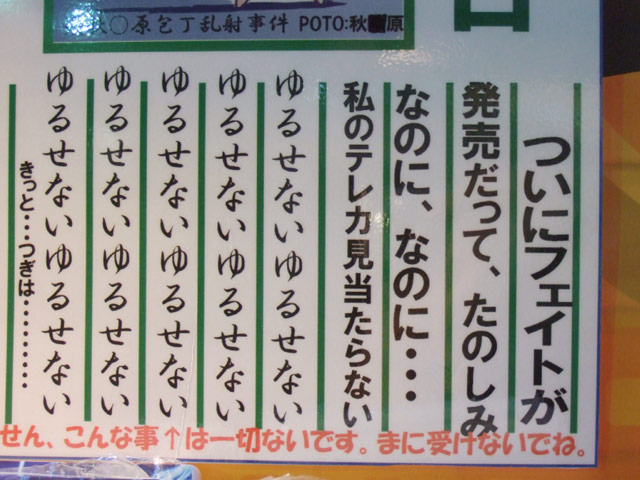 〇原包丁乱射事件 POTO:秋■原
日
ついにフェイトが
発売だって、たのしみ
なのに、なのに・・・
私のテレカ見当たらない
ゆるせないゆるせない
ゆるせないゆるせない
ゆるせないゆるせない
ゆるせないゆるせない
ゆるせないゆるせない
きっと・・・つぎは・・・・・・・・・
せん、こんな事↑は一切ないです。まに受けないでね。